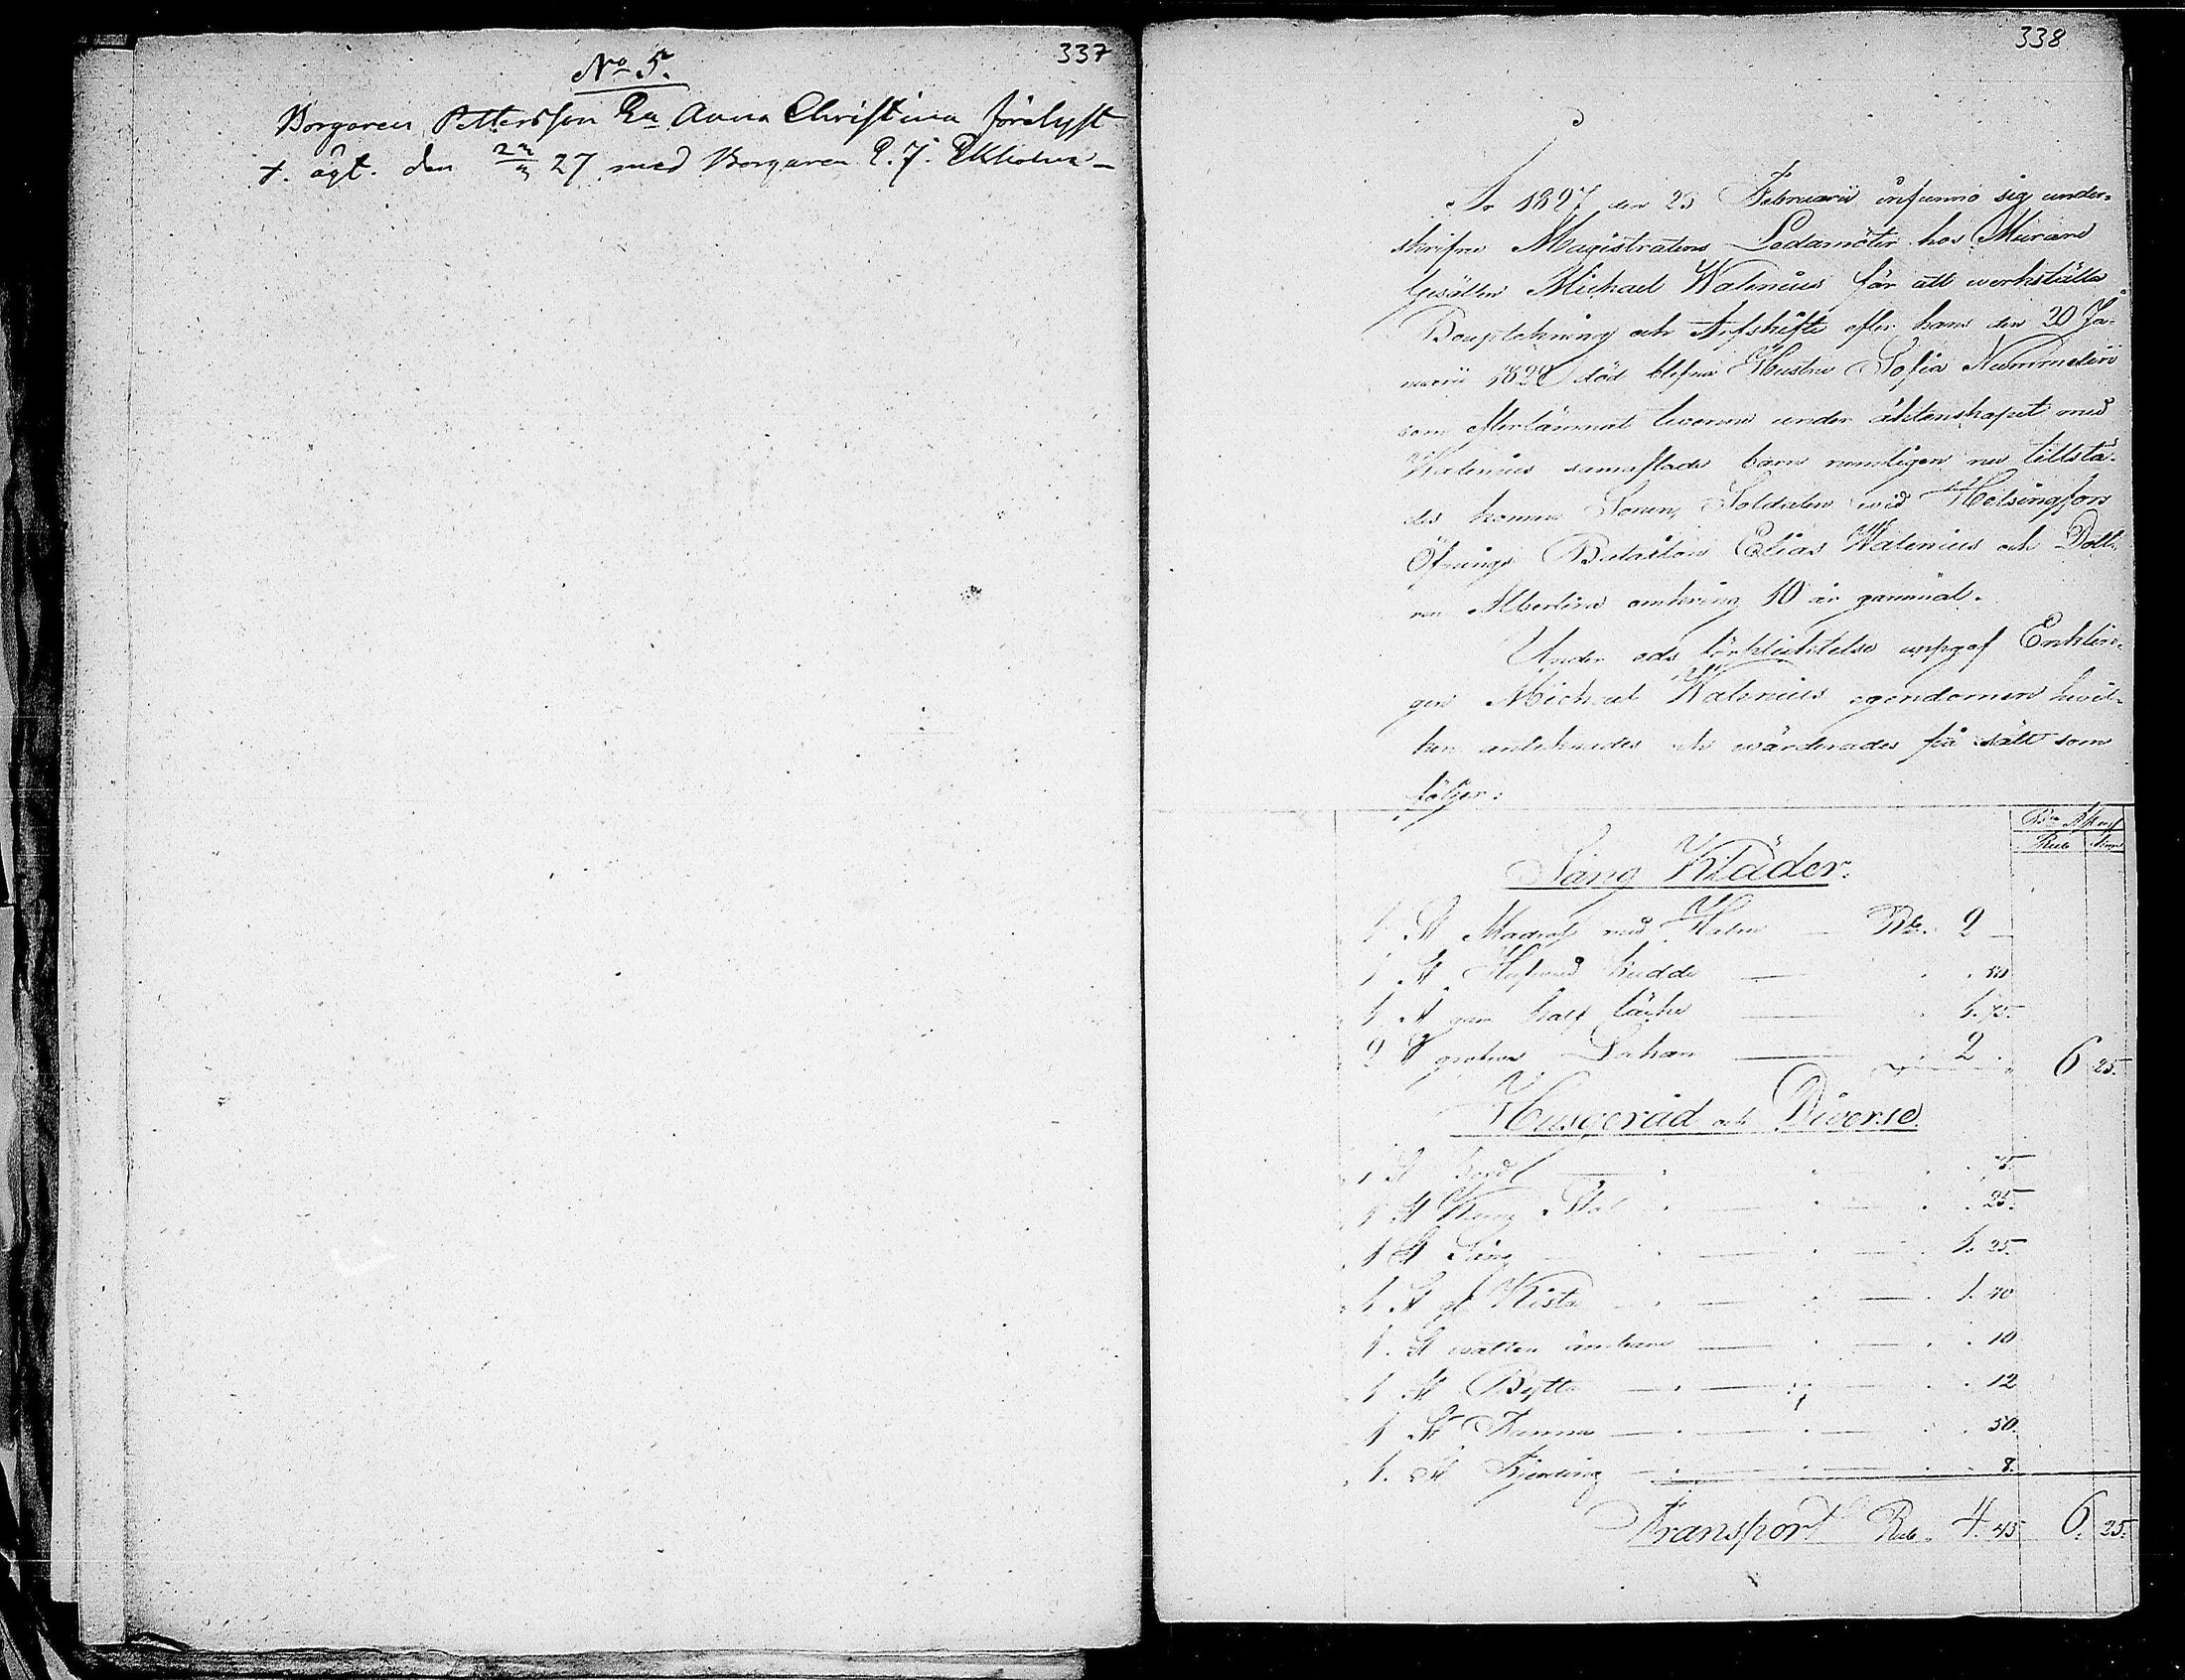 337
No 5.
Borgaren Pettersson Ea Anna Christina förelyst
t. ägt. den 27 med Borgaren P. J. Ekholm –
338
År 1827 den 23 Februarii infunno sig under-
skrifne Magistratens Ledamöter hos Murare
Gesällen Michael Walenius för att werkställa
Bouptekning och Arfskifte efter hans den 20 Ja-
nuarii 182 död blefna Hustru Sofia Nummelin
som efterlämnat tvenne under äktenskapet med
Walenius sammaflade barn nemligen nu tillstä-
des komne Sonen, Soldaten wid Helsingfors
Öfnings Bataillon Elias Walenius och Dott-
ren Albertina omkring 10 år gammal.
Under eds förpliktelse uppgaf Enklin-
gen Michael Walenius egendomen hvil-
ken antecknades och wärderades på sätt som
följer:
Bco Ass
Rub Kop
Säng Kläder.
1 St Madrass med Halm — Rb. 2 —
1 St Hufwud Kudde — 50
1 St gam half täcke — 1. 75.
2 St grofva Lakan — 2. 6 25.
Husgeråd och Diverse.
1 St Bord — 75.
1 St Stol — 25.
1 St Säng — 1. 25.
1 St gl Kista — 1. 40
1. St watten ämbare — 10
1 St Bytta — 12
1 St Kanna — 50.
1. St Kjerling — 8.
Transport Rub. 4. 45 6. 25.